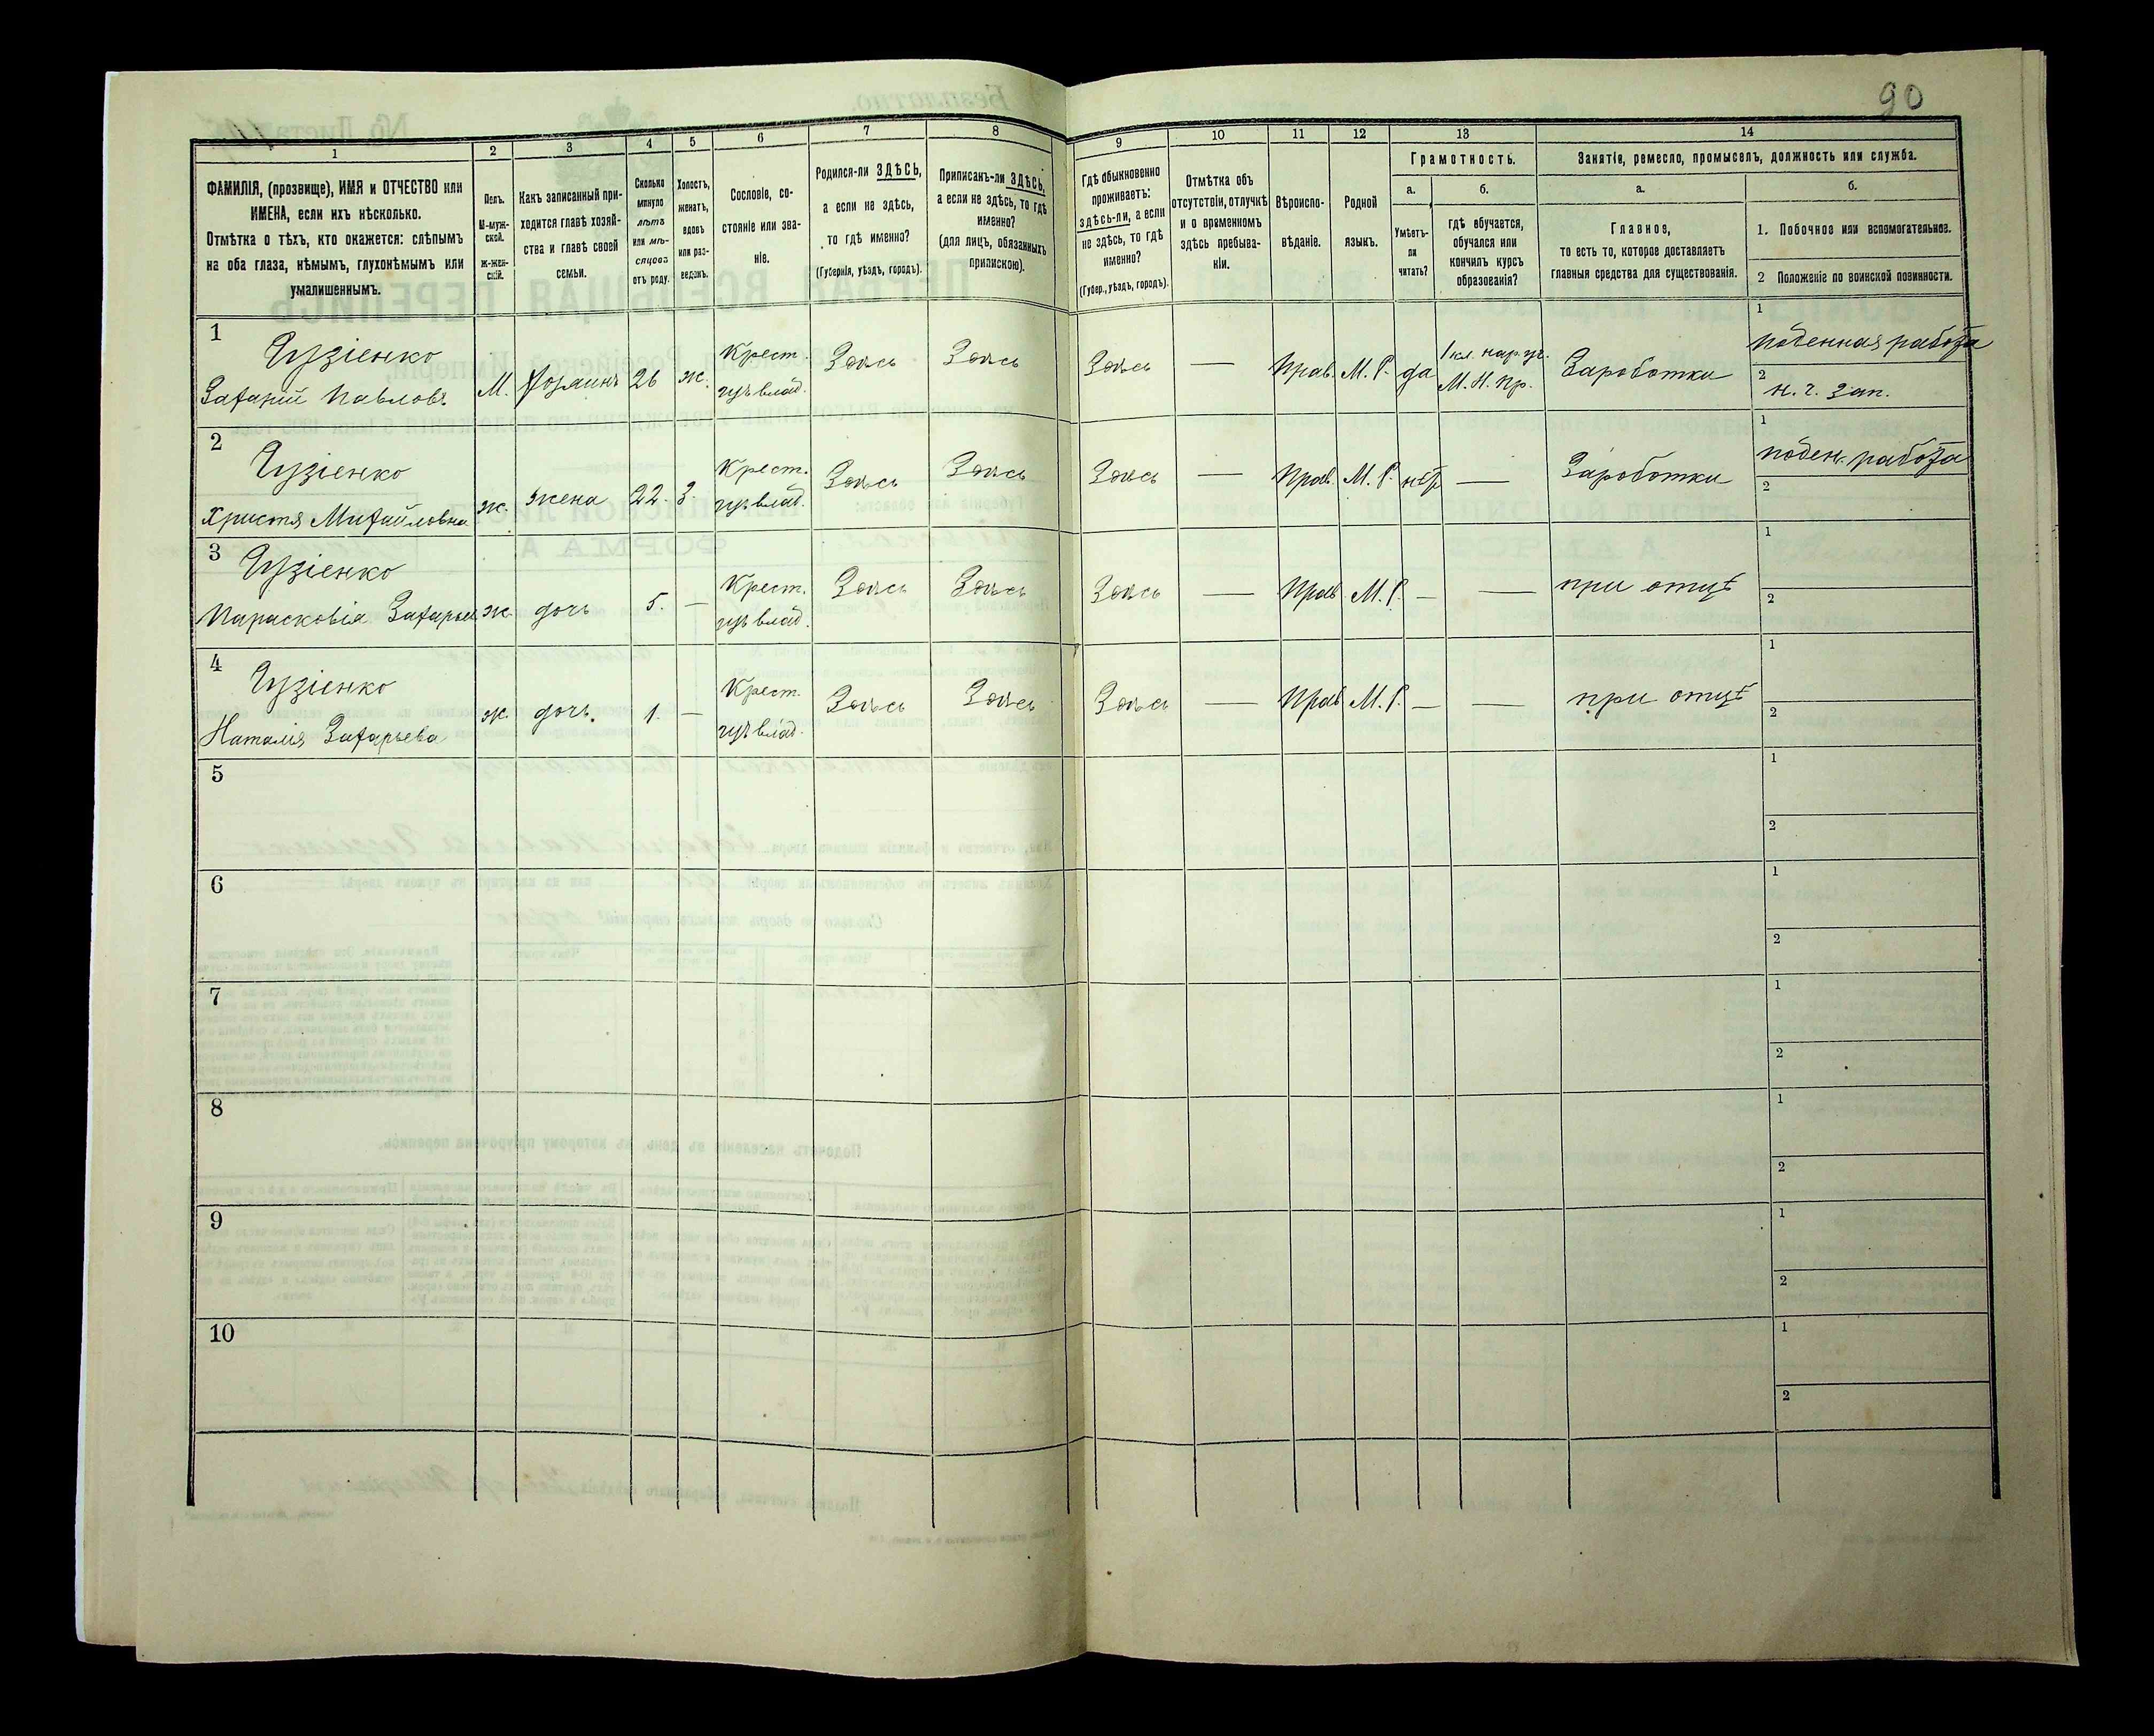 90
1
2
3
4
5
6
7
8
9
10
11
12
13
14
ФАМИЛІЯ, (прозвище), ИМЯ и ОТЧЕСТВО или
ИМЕНА, если ихъ нѣсколько.
Отмѣтка о тѣхъ, кто окажется: слѣпымъ
на оба глаза, нѣмымъ, глухонѣмымъ или
умалишеннымъ.
Полъ.
М-муж-
ской.
Ж-жен-
скій.
Какъ записанный при-
ходится главѣ хозяй-
ства и главѣ своей
семьи.
Сколько
минуло
лѣтъ
или мѣ-
сяцовъ
отъ роду.
Холостъ,
женатъ,
вдовъ
или раз-
веденъ.
Сословіе, со-
стояніе или зва-
ніе.
Родился-ли ЗДѢСЬ,
а если не здѣсь,
то гдѣ именно?
(Губернія, уѣздъ, городъ).
Приписанъ-ли ЗДѢСЬ,
а если не здѣсь, то гдѣ
именно?
(для лицъ, обязанныхъ
припискою).
Гдѣ обыкновенно
проживаетъ:
здѣсь-ли, а если
не здѣсь, то гдѣ
именно?
(Губер., уѣздъ, городъ).
Отмѣтка объ
отсутствіи, отлучкѣ
и о временномъ
здѣсь пребыва-
ніи.
Вѣроиспо-
вѣданіе.
Родной
языкъ.
Грамотность.
а.
Умѣетъ-
ли
читать?
б.
гдѣ обучается,
обучался или
кончилъ курсъ
образованія?
Занятіе, ремесло, промыселъ, должность или служба.
а.
Главное,
то есть то, которое доставляетъ
главныя средства для существованія.
б.
1. Побочное или вспомогательное.
2 Положеніе по воинской повинности.
1
Гузіенко
Захарій Павловъ
М.
Хозяинъ
26
ж.
Крест.
Здѣсь
Здѣсь
Здѣсь
—
Прав.
М. Р.
да
1 кл. нар. уч.
М. Н. Пр.
Зароботки
1
поденная работа
2
н. ч. зап.
2
Гузіенко
Христя Михайловна
ж.
жена
22.
З.
Крест.
Здѣсь
Здѣсь
Здѣсь
—
Прав.
М. Р.
нѣт
—
Зароботки
1
поден. работа
2
3
Гузіенко
Парасковія Захарьев
ж.
дочь
5.
—
Крест.
Здѣсь
Здѣсь
Здѣсь
—
Прав.
М. Р.
—
—
при отцѣ
1
2
4
Гузіенко
Наталія Захарьева
ж.
дочь.
1.
—
Крест.
Здѣсь
Здѣсь
Здѣсь
—
Прав
М. Р.
—
—
при отцѣ
1
2
5
1
2
6
1
2
7
1
2
8
1
2
9
1
2
10
1
2